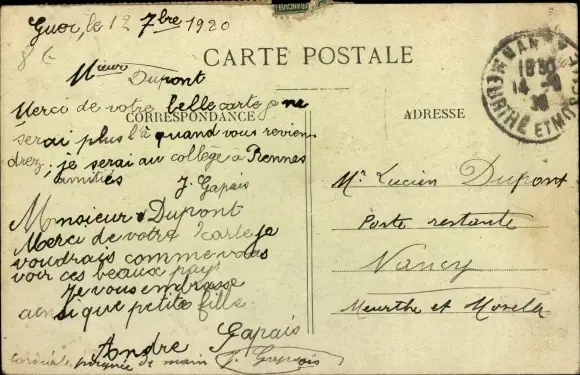 Guer, le 12 7bre 1920
CARTE POSTALE
CORRESPONDANCE
ADRESSE
Mieur Dupont
Merci de votre belle carte je ne
serai plus là quand vous revien
drez; je serai au collège à Rennes
amitiés
J. Gapais
Monsieur Dupont
Merci de votre carte je
voudrais comme vous
voir ces beaux pays
Je vous embrasse
ainsi que petite fille
Andre Gapais
Cordiale poignée de main J. Gapais
Mr Lucien Dupont
Poste restante
Nancy
Meurthe et Moselle
NANCY
14
MEURTHE ET MOSELLE